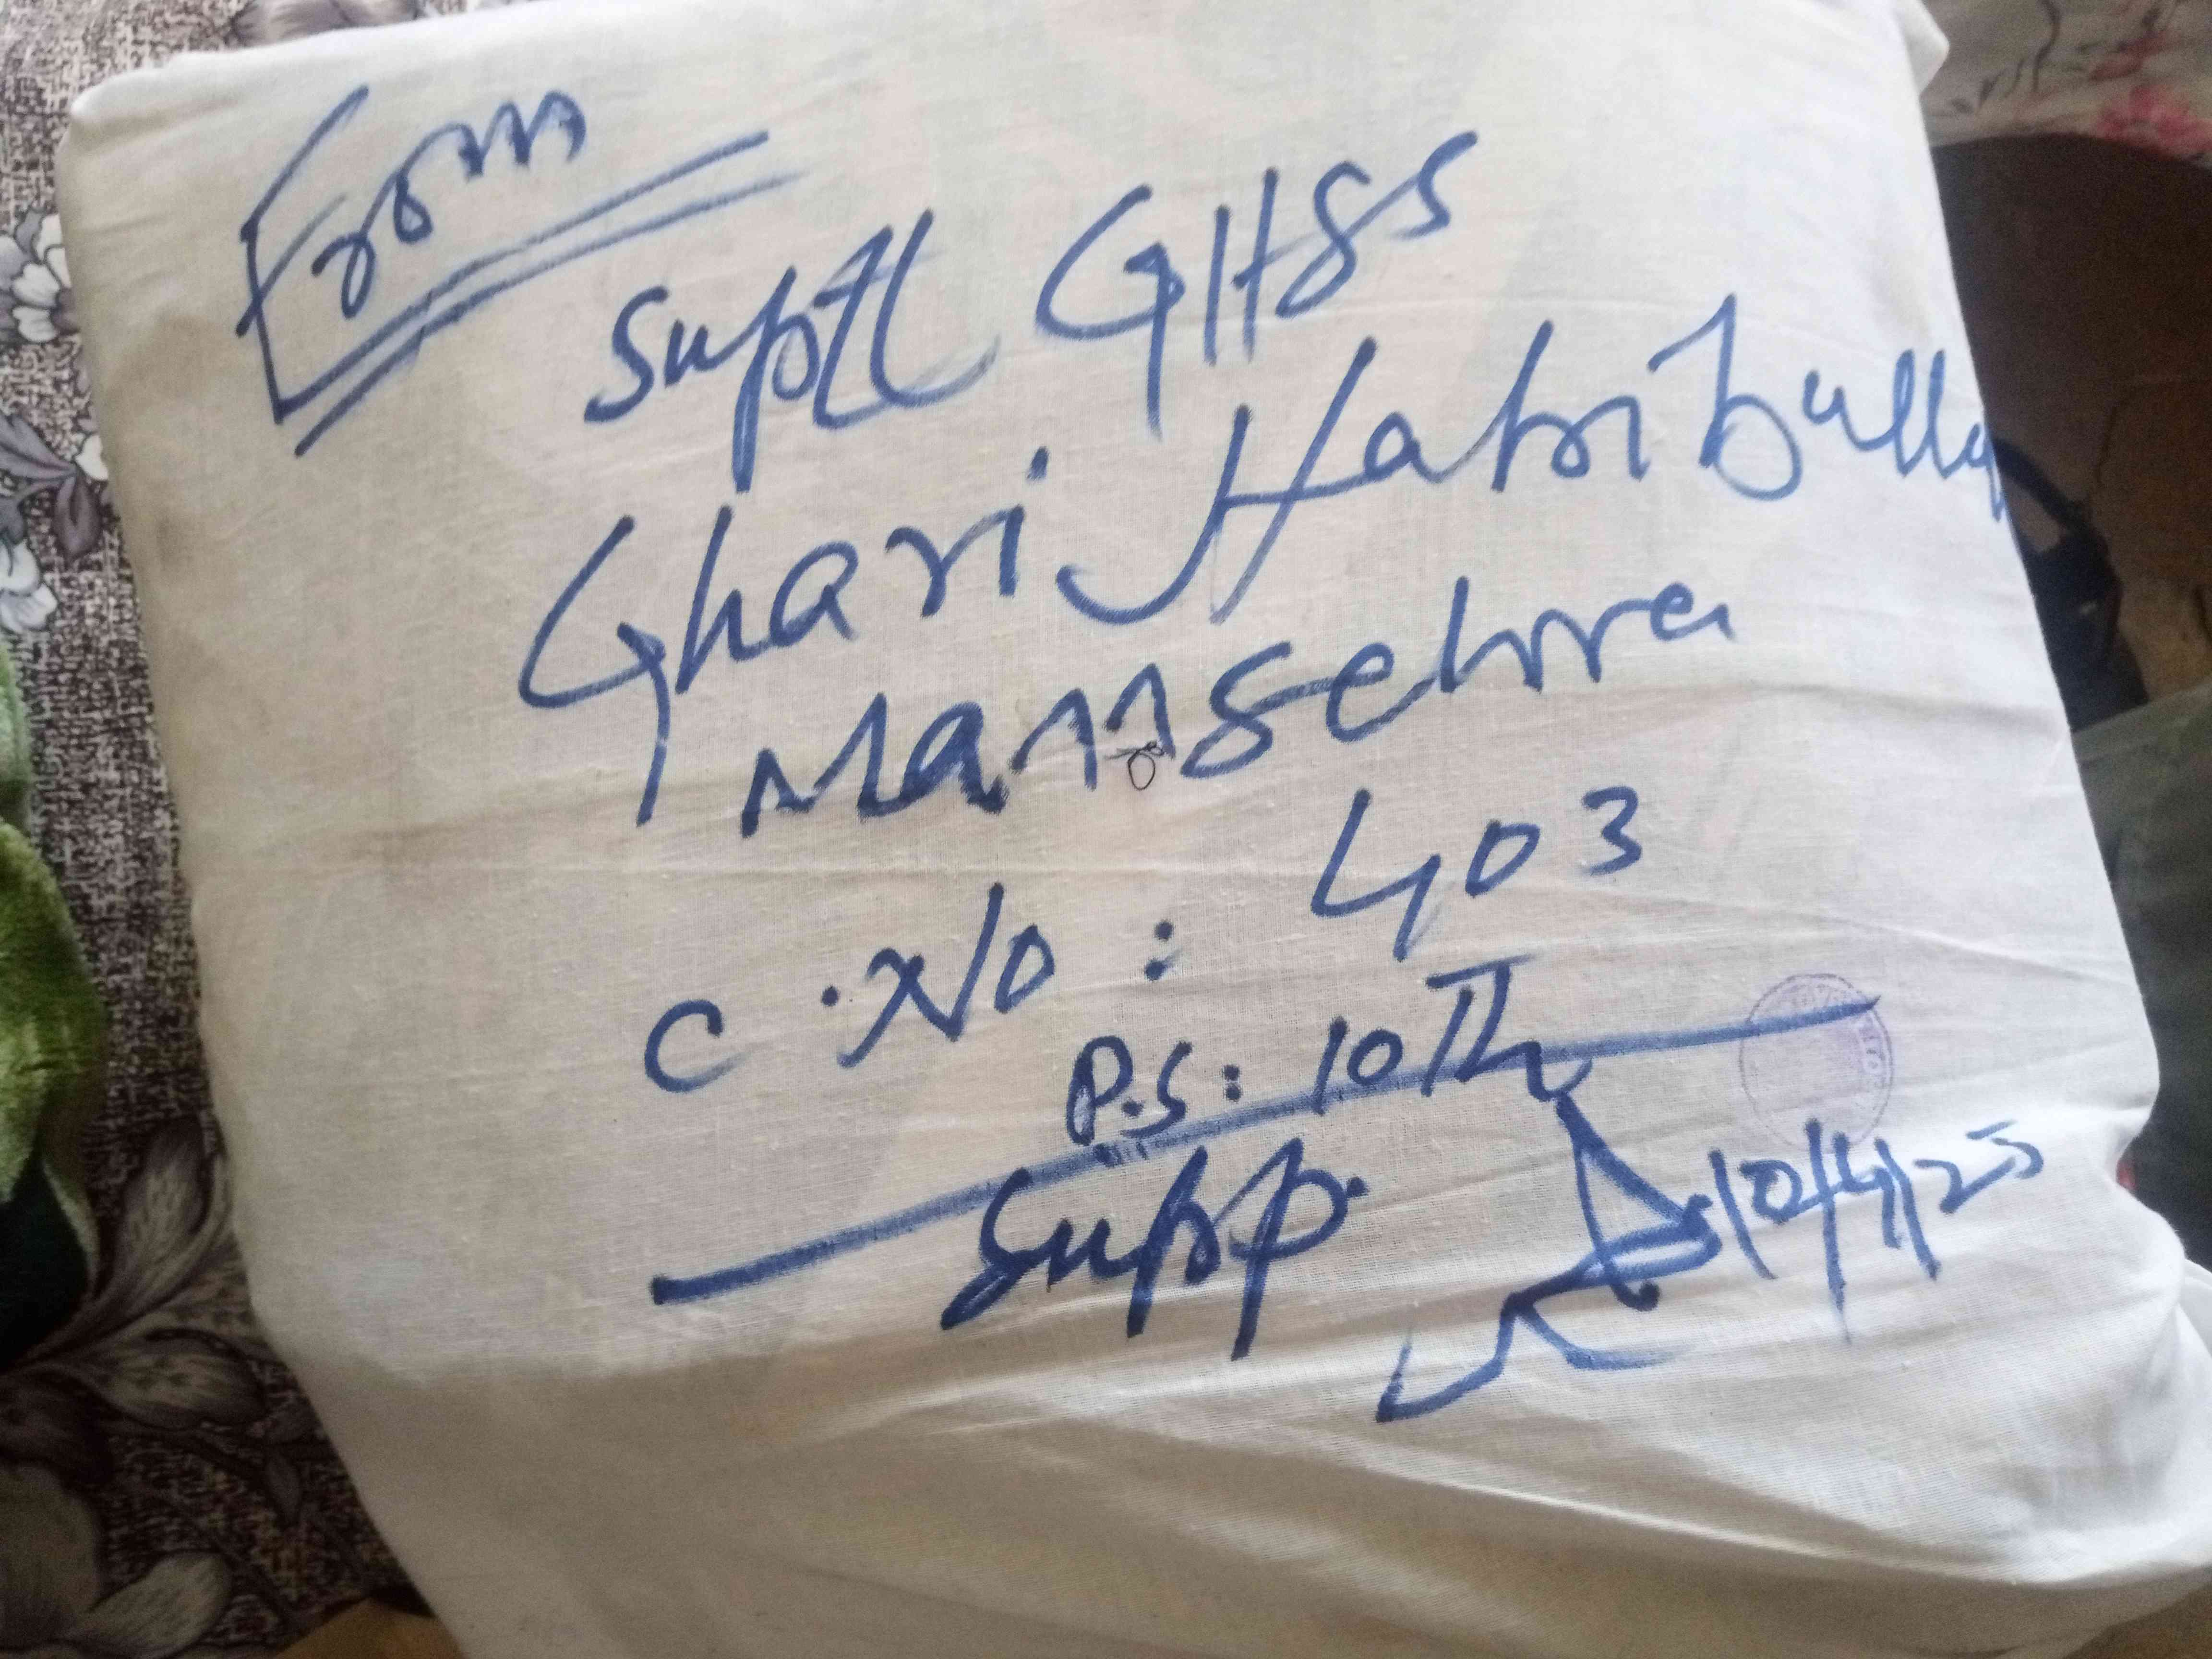 From
Suptt GHSS
Ghari Habibulla
Mansehra
C.No : 403
P.S: 10Th
Supp.
10/4/25